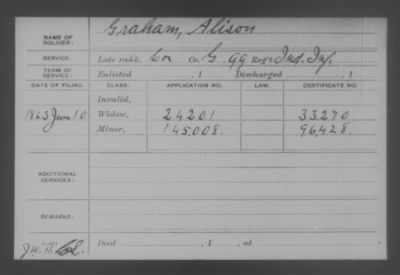 Graham, Alison
NAME OF SOLDIER:
SERVICE: Late rank, Cor Co. G, 99 Reg't Ind. Inf.
TERM OF SERVICE: Enlisted , 1 Discharged , 1
DATE OF FILING. CLASS. APPLICATION NO. LAW. CERTIFICATE NO.
Invalid,
1863 June 10 Widow, 24201 33.270
Minor, 145.008. 96.428.
ADDITIONAL SERVICES:
REMARKS:
Died , 1 , at